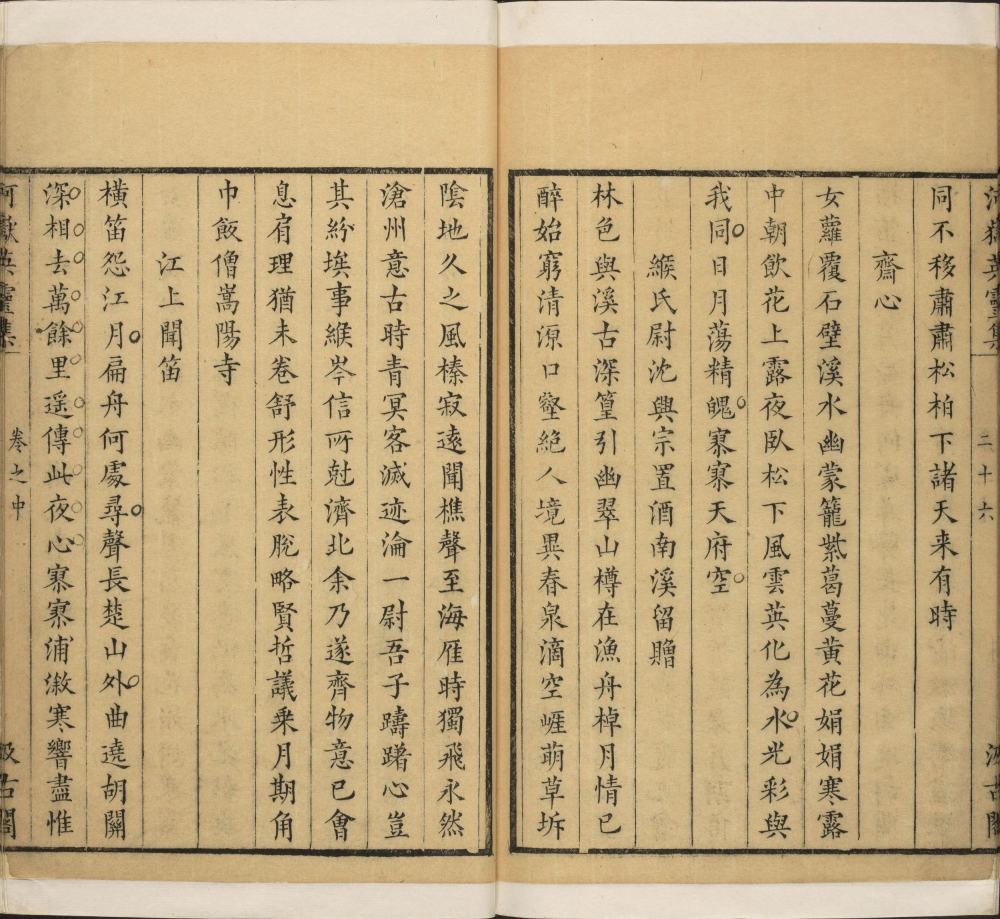 河嶽英靈集
二十六
汲古閣
同不移肅肅松柏下諸天来有時
齋心
女蘿覆石壁溪水幽蒙籠紫葛蔓黄花娟娟寒露
中朝飲花上露夜臥松下風雲英化為水光彩與
我同日月蕩精魄寥寥天府空
緱氏尉沈興宗置酒南溪留贈
林色與溪古深篁引幽翠山樽在漁舟棹月情已
醉始窮清源口壑絶人境異春泉滴空崕萌草坼
陰地久之風榛寂遠聞樵聲至海雁時獨飛永然
滄州意古時青冥客滅迹淪一尉吾子躊躇心豈
其紛埃事緱岑信所尅濟北余乃遂齊物意已會
息肩理猶未卷舒形性表脫略賢哲議乘月期角
巾飯僧嵩陽寺
江上聞笛
橫笛怨江月扁舟何處尋聲長楚山外曲遶胡關
深相去萬餘里遥傳此夜心寥寥浦漵寒響盡惟
河嶽英靈集
卷之中
汲古閣